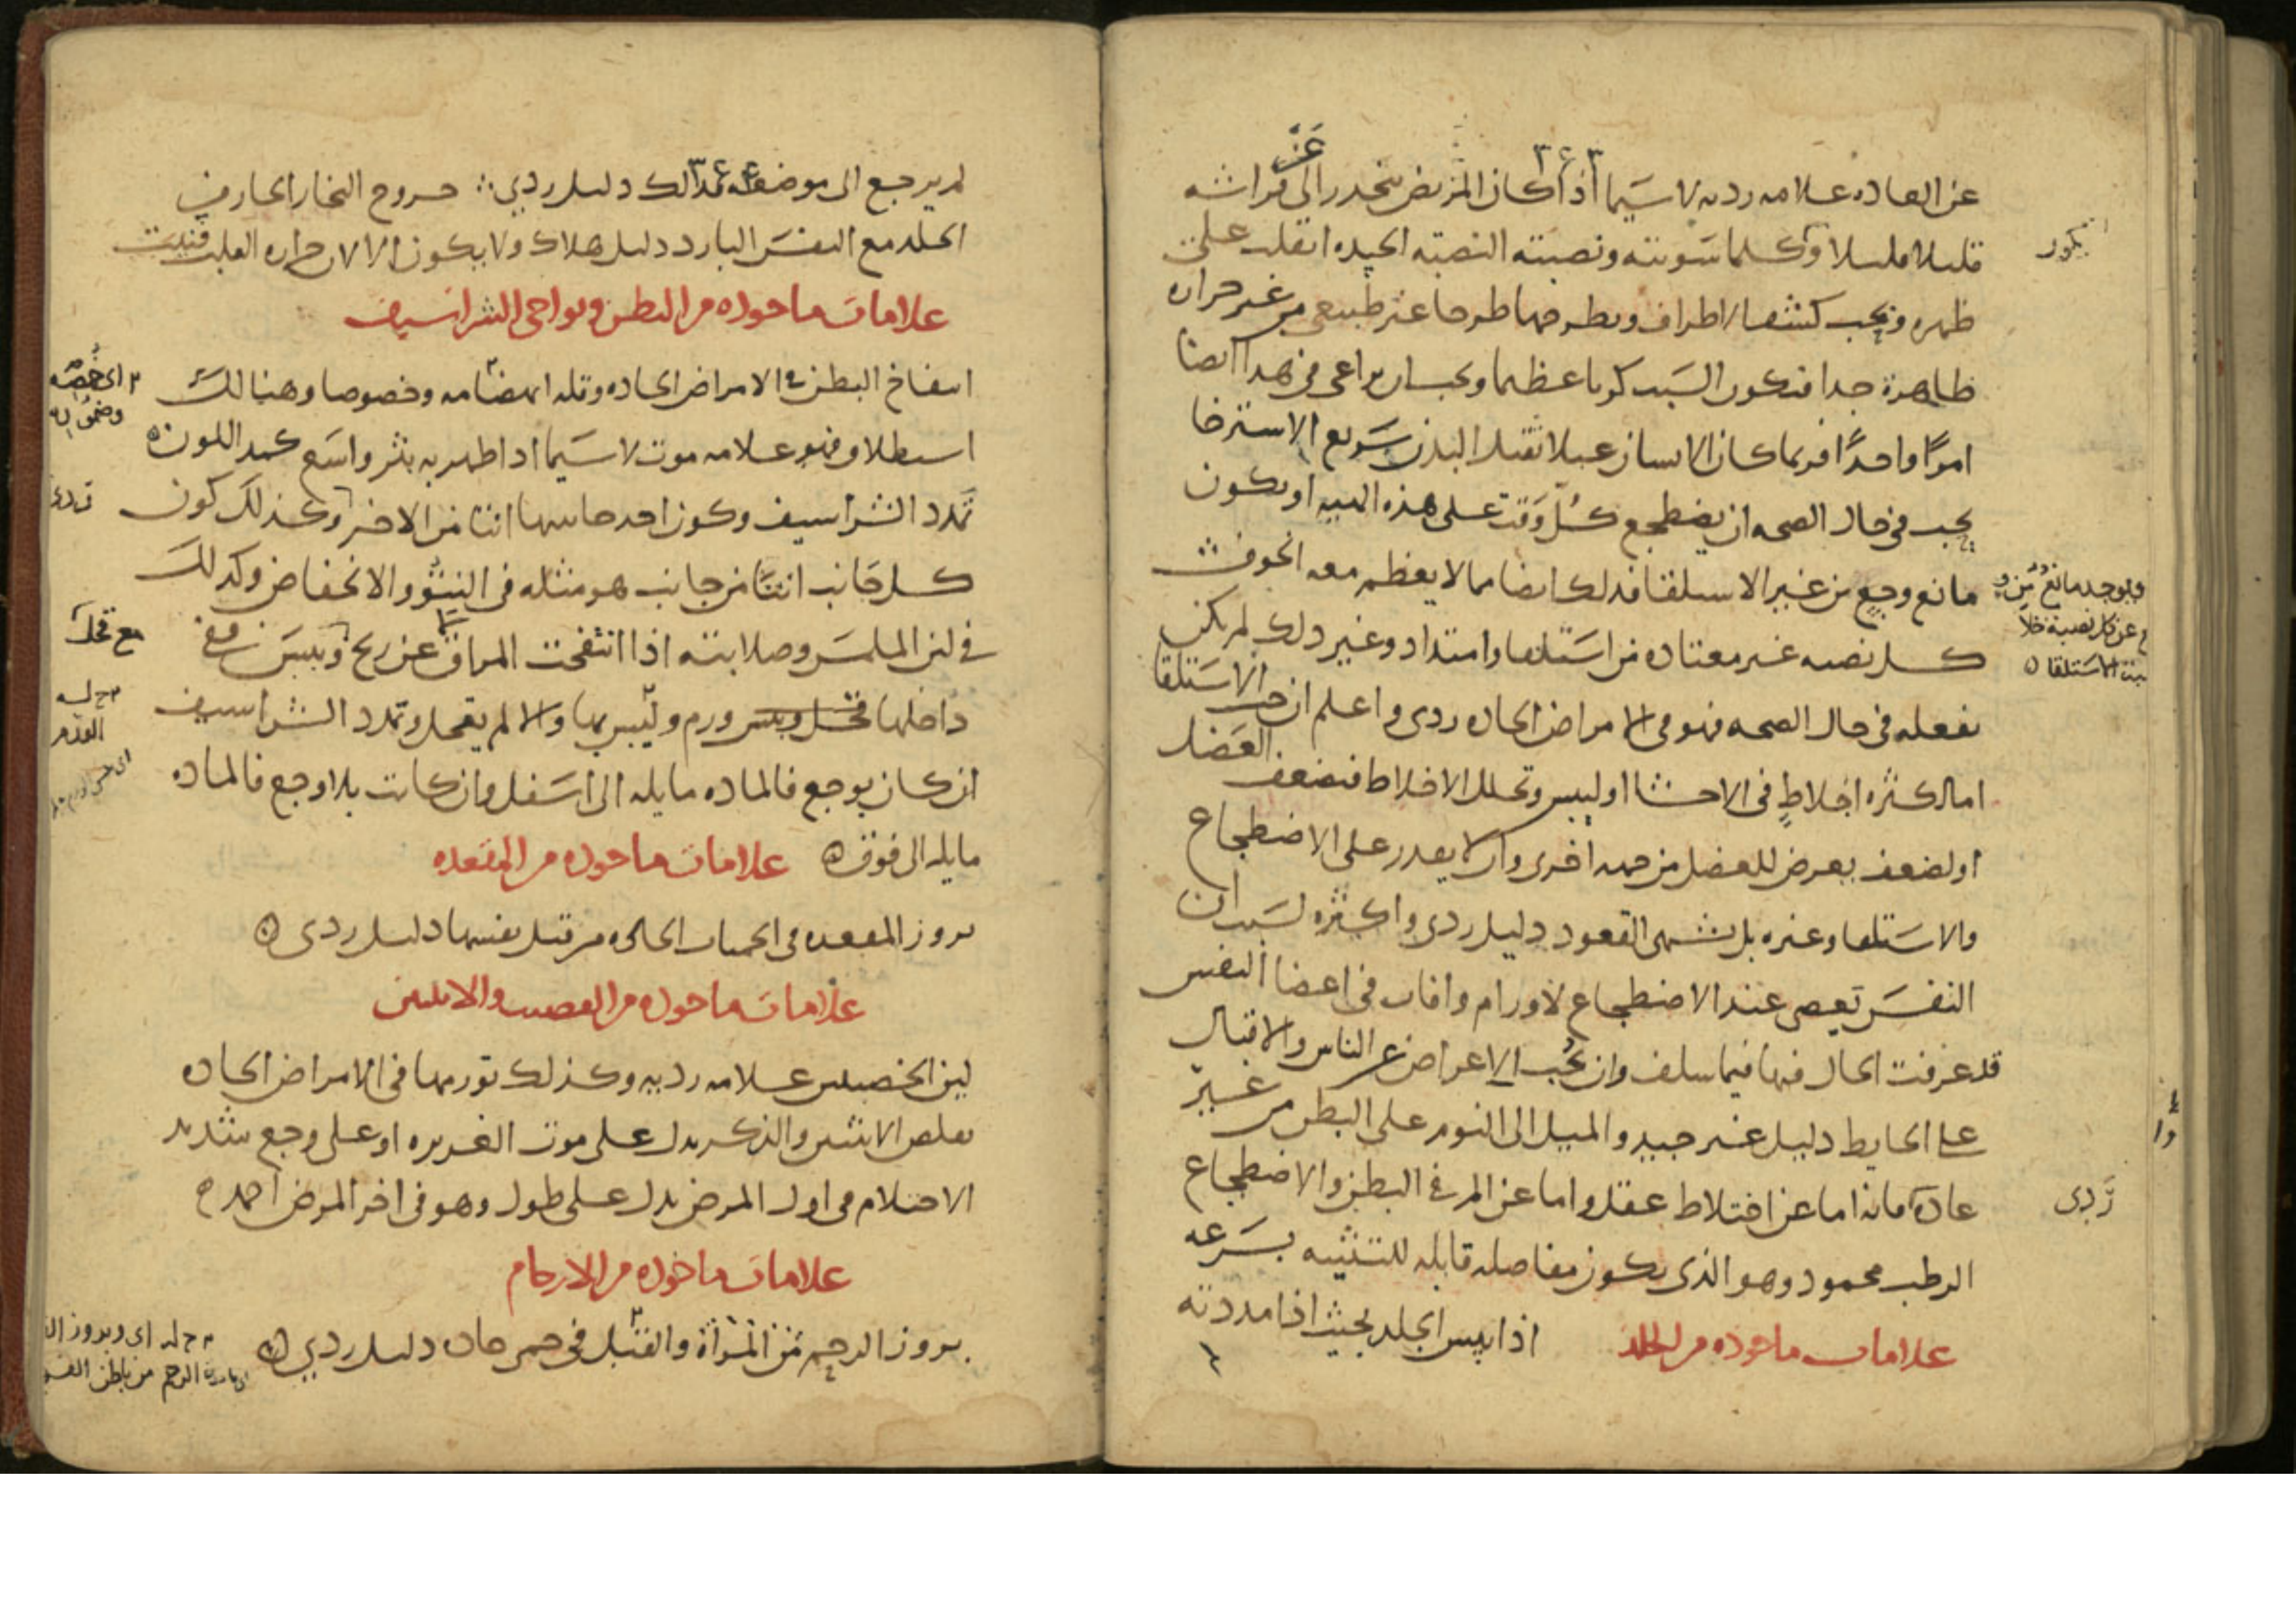 عن العاده علامه رديه لا سيما اذا كان المريض ينحدر الى عن فراشه
قليلا قليلا وكلما سويته ونصبته النصبه الجيده انقلب على
ظهره ويحب كشف الاطراف ويطرحها طرحا غير طبيعى من غير حراره
ظاهرة جدا فيكون السبب كربا عظيما ويجب ان يراعى فى هذا ايضا
امرًا واحدًا فربما كان الانسان عبلا ثقيل البدن سريع الاسترخا
يحب فى حال الصحه ان يضطجع كل وقت على هذه الهييه او يكون
مانع وجع من غير الاستلقا فذلك ايضا مما لا يعظم معه الخوف
كل نصبه غير معتاده من استلقا وامتداد وغير ذلك لم يكن
يفعله فى حال الصحه فهو فى الامراض الحاده ردى واعلم ان حب الاستلقا
اما لكثره اخلاطٍ فى الاحشا او ليبس وتحلل الاخلاط فيضعف العضل
او لضعف يعرض للعضل من جهه اخرى وان لا يقدر على الاضطجاع
والاستلقا وغيره بل يشتهى القعود دليل ردى واكثره لسبب ان
النفس تعصى عند الاضطجاع لاورام وافات فى اعضا النفس
قد عرفت الحال فيها فيما سلف وان يحب الاعراض عن الناس والاقبال
على الحايط دليل غير جيد والميل الى النوم على البطن من غير
عادة فانه اما عن اختلاط عقل واما عن الم فى البطن والاضطجاع
الرطب محمود وهو الذى يكون مفاصله قابله للتثنيه بسرعه
علامات ماخوذه من الجلد اذا يبس الجلد بحيث اذا مددته
ردى
لم يرجع الى موضعه فذلك دليل ردى خروج البخار الحار من
الجلد مع النفس البارد دليل هلاك ولا يكون الا لان حراره القلب فنيت
علامات ماخوذه من البطن ونواحى الشراسيف
انتفاخ البطن فى الامراض الحاده وقله انهضامه وخصوصا وهنالك
استطلاق فهو علامه موت لا سيما اذا ظهر به بثر واسع كمد اللون
تمدد الشراسيف وكون احد جانبيها انتا من الاخر وكذلك كون
كل جانب انتا من جانب هو مثله فى النتؤ والانخفاض وكذلك
فى لين الملمس وصلابته اذا انتفخت المراق عن ريح ويبس من
داخلها قحل ويبس ورم ولييس بها والا لم يقحل وتمدد الشراسيف
ان كان بوجع فالماده مايله الى اسفل وان كانت بلا وجع فالماده
مايله الى فوق علامات ماخوذه من المقعده
بروز المقعده فى الحميات الحاده من قبل نفسها دليل ردى
علامات ماخوذه من القضيب والانثيين
لين الخصيتين علامه رديه وكذلك تورمها فى الامراض الحاده
تقلص الانثيين والذكر يدل على موت الغريزه او على وجع شديد
الاحتلام فى اول المرض يدل على طول وهو فى اخر المرض احمد
علامات ماخوذه من الارحام
بروز الرحم من المرأة والقبل فى حمى حاده دليل ردى